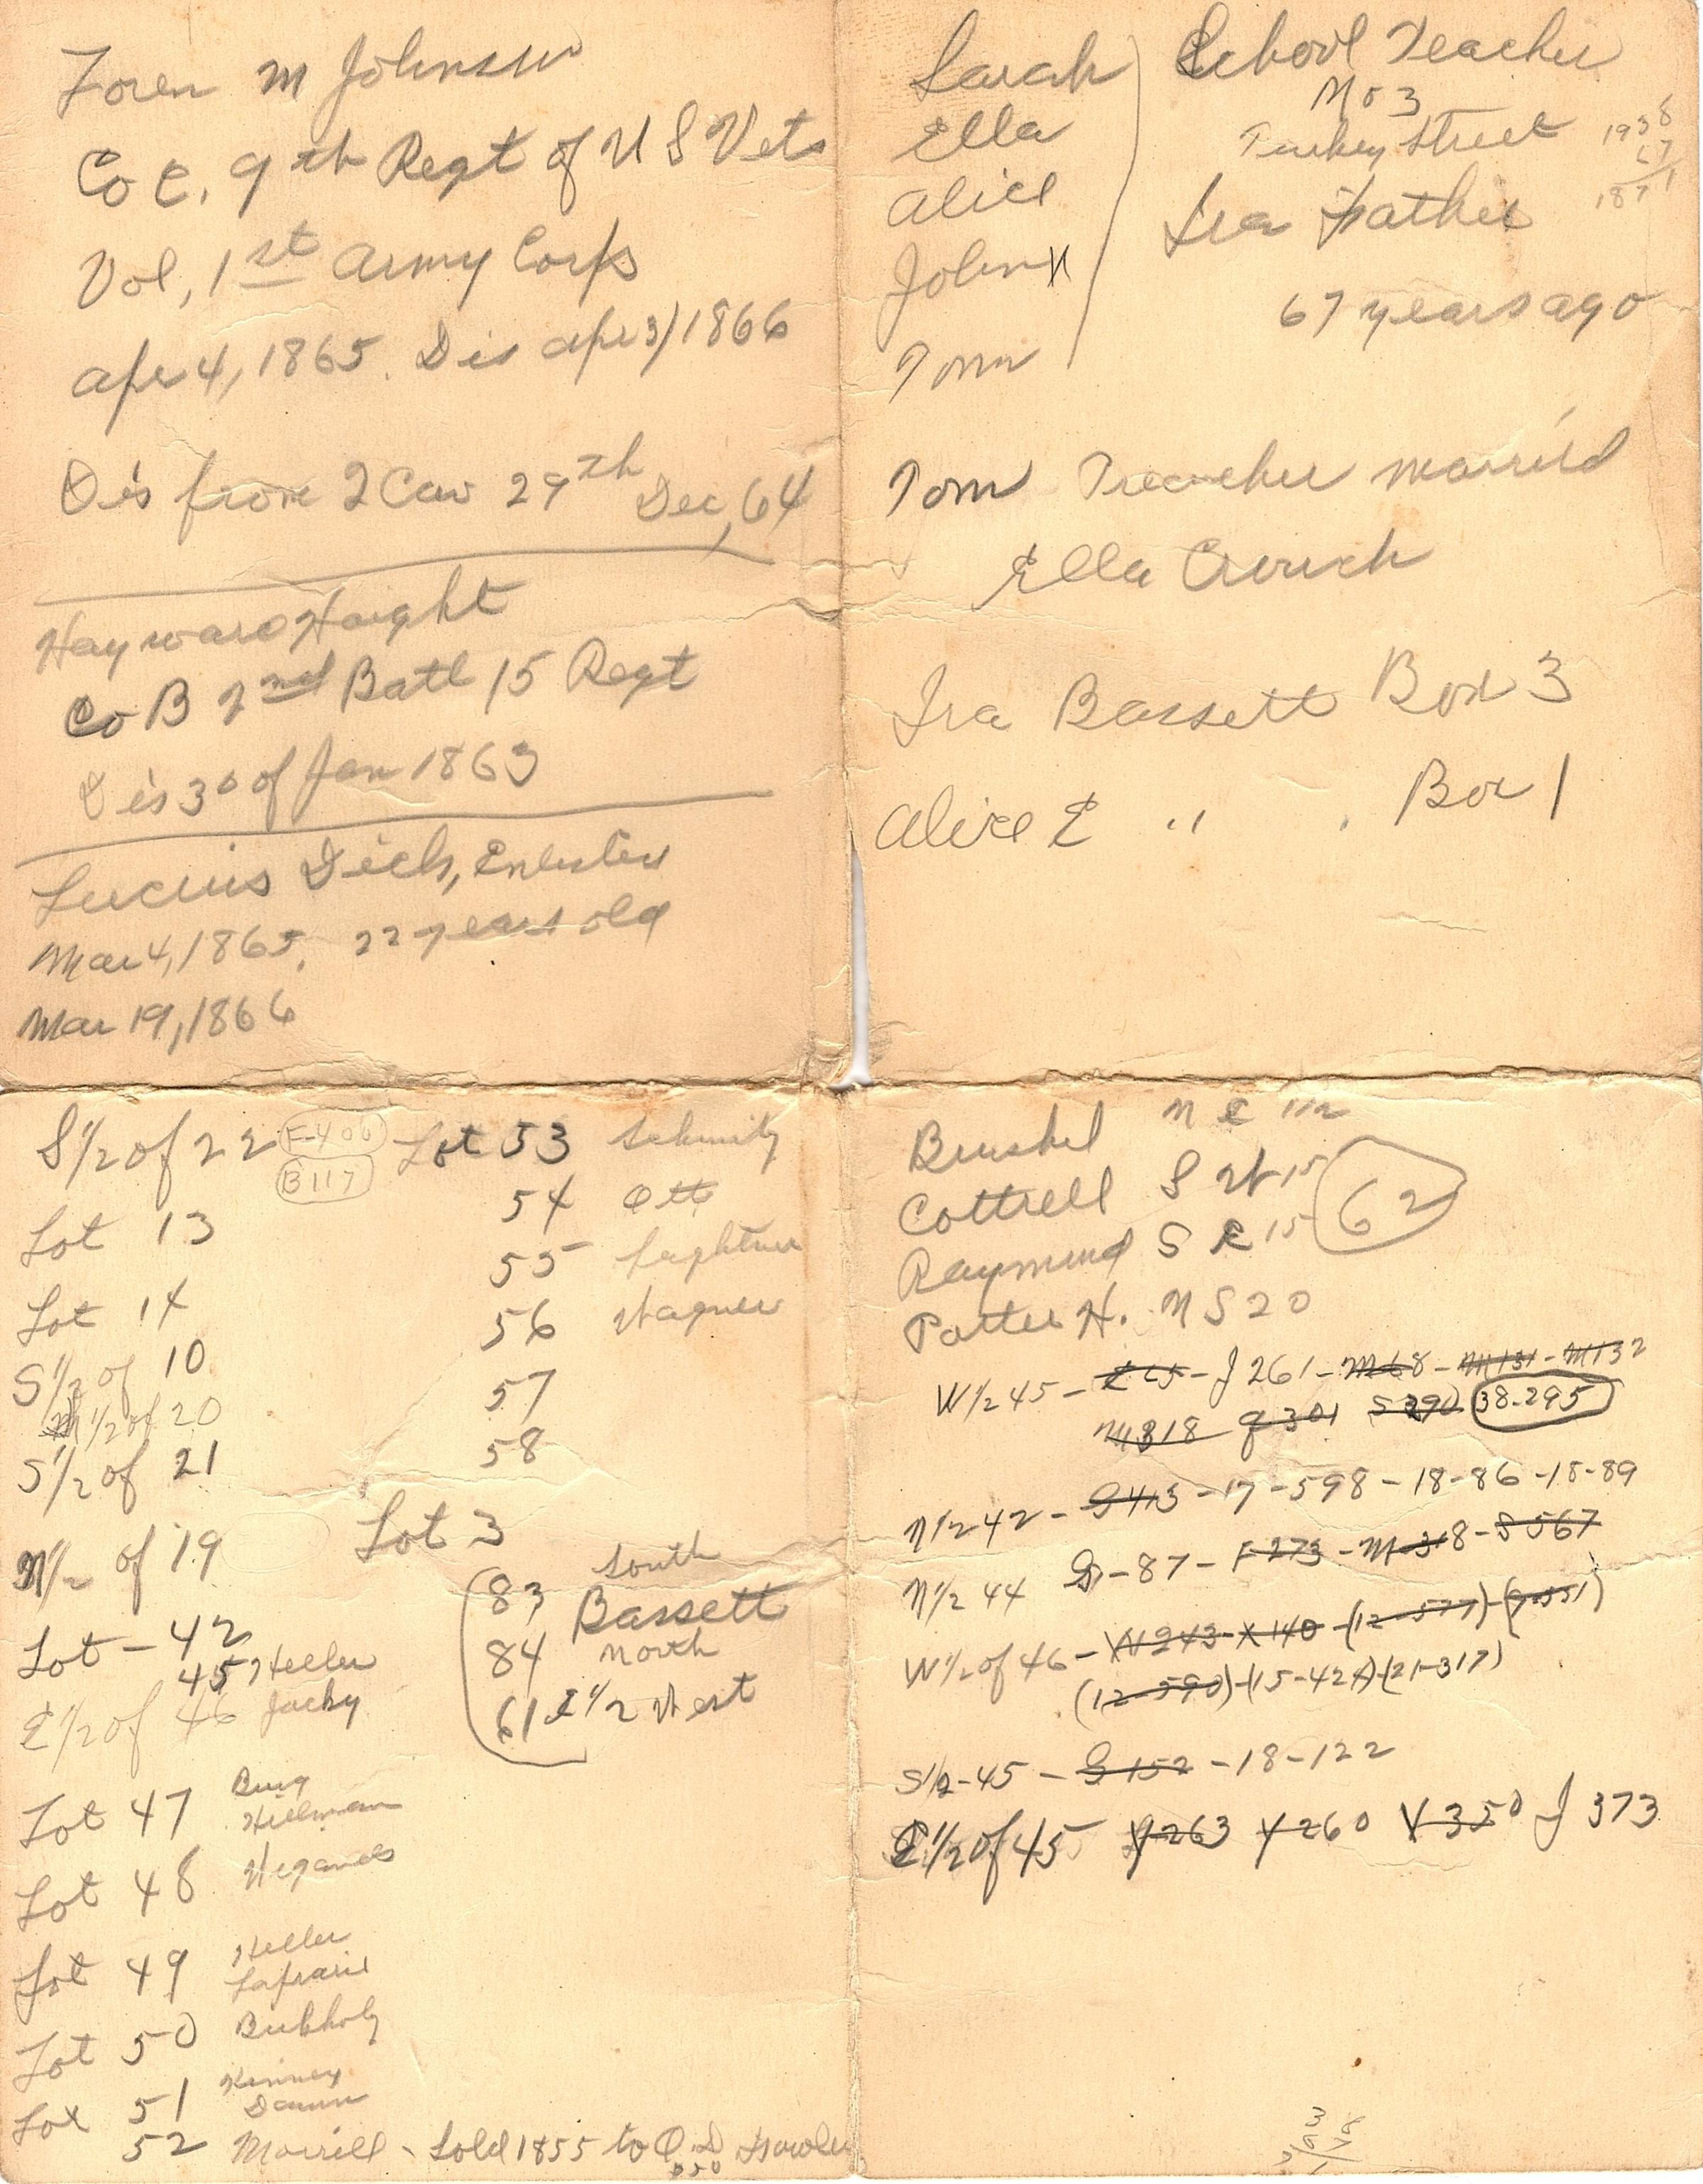 Loren M Johnson
Co C. 9th Regt of U S Vets
Vol, 1st Army Corps
Apr 4, 1865. Dis Apr 3/1866
Dis from 2 Cav 29th Dec, 64
Hayward Haight
Co B 2nd Batl 15 Regt
Dis 30 of Jan 1863
Lucius Dick, Enlisted
Mar 4, 1865, 22 years old
Mar 19, 1866
Sarah
Ella
Alice
John
Tom
School Teacher
No 3
Turkey Street
1938
67
1871
Ira Father
67 years ago
Tom Treacher married
Ella Crouch
Ira Bassett Box 3
Alice E " . Box 1
S 1/2 of 22 F-406
B 117
Lot 13
Lot 14
S 1/2 of 10
1/2 of 20
S 1/2 of 21
N 1/2 of 19
Lot - 42
45 Heller
E 1/2 of 46 Jacky
Lot 47 Burg
Hillmann
Lot 48
Lot 49 Heller
Lot 50 Bukholz
Lot 51 Kinney
Damm
52 Morrill - Sold 1855 to O.D. Fowler
Lot 53 Schmitz
54 Ott
55 Leightner
56 Wagner
57
58
Lot 3
83 South
Bassett
84 North
61 E 1/2 West
Brushel N E 1/2
Cottrell S W 15
62
Raymond S E 15
Potter H. N S 20
W 1/2 45 - E 65 - J 261 - M 68 - M 131 - M 132
M 318 J 301 S 290 38-295
N 1/2 42 - G 413 - 17-598 - 18-86 - 18-89
N 1/2 44 G - 87 - F 273 - M 318 - S 567
W 1/2 of 46 - W 243 - X 140 - (12-577) - (9-551)
(12-590) - (15-424) - (21-317)
S 1/2 - 45 - G 152 - 18-122
E 1/2 of 45 Y 263 Y 260 V 350 J 373